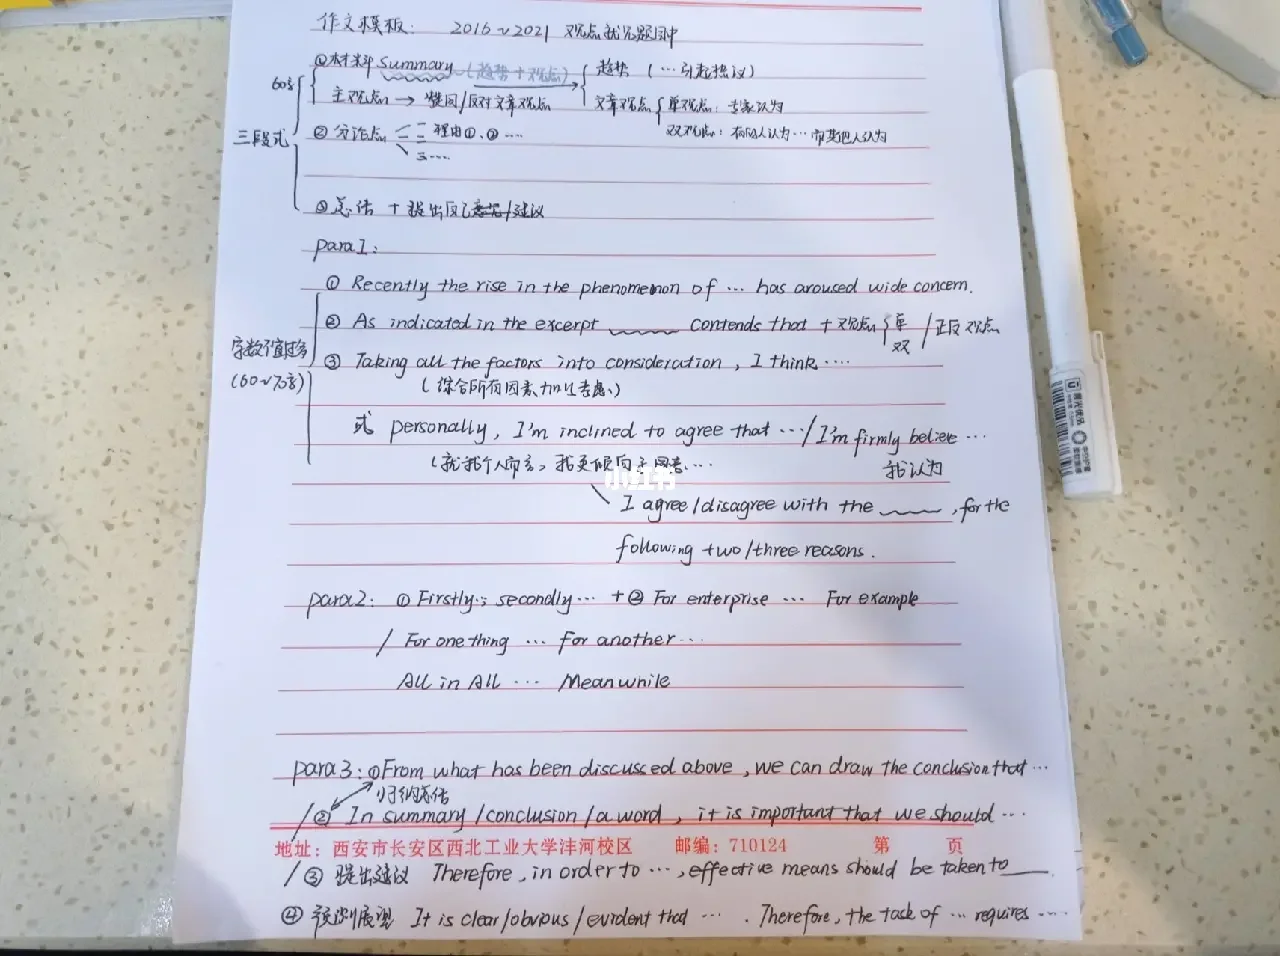 作文模板: 2016~2021 观点就况题材
①材料 Summary (趋势+观点) → 趋势 (…引起热议)
60字
主观点 → 赞同/反对文章观点 文章观点 单观点: 专家认为
双观点: 有的人认为…而其他人认为
三段式
② 分论点 一 二 理由①、② ….
三….
③总结 + 提出反思/建议
para1:
① Recently the rise in the phenomenon of … has aroused wide concern.
② As indicated in the excerpt ____ contends that + 观点 单 双 / 正反观点
字数不宜过多
(60~70字)
③ Taking all the factors into consideration, I think….
(综合所有因素加以考虑)
或 personally, I'm inclined to agree that …/I'm firmly believe …
(就我个人而言,我更倾向于同意… 我认为
I agree/disagree with the ____, for the
following two/three reasons.
para2: ① Firstly…; secondly… + ② For enterprise … For example
/ For one thing … For another…
All in All … Meanwhile
para3: ①From what has been discussed above, we can draw the conclusion that …
归纳总结
/② In summary/conclusion/a word, it is important that we should …
地址: 西安市长安区西北工业大学沣河校区 邮编: 710124 第 页
/③ 提出建议 Therefore, in order to …, effective means should be taken to____
④ 预测展望 It is clear/obvious/evident that …. Therefore, the task of … requires ….
小红书